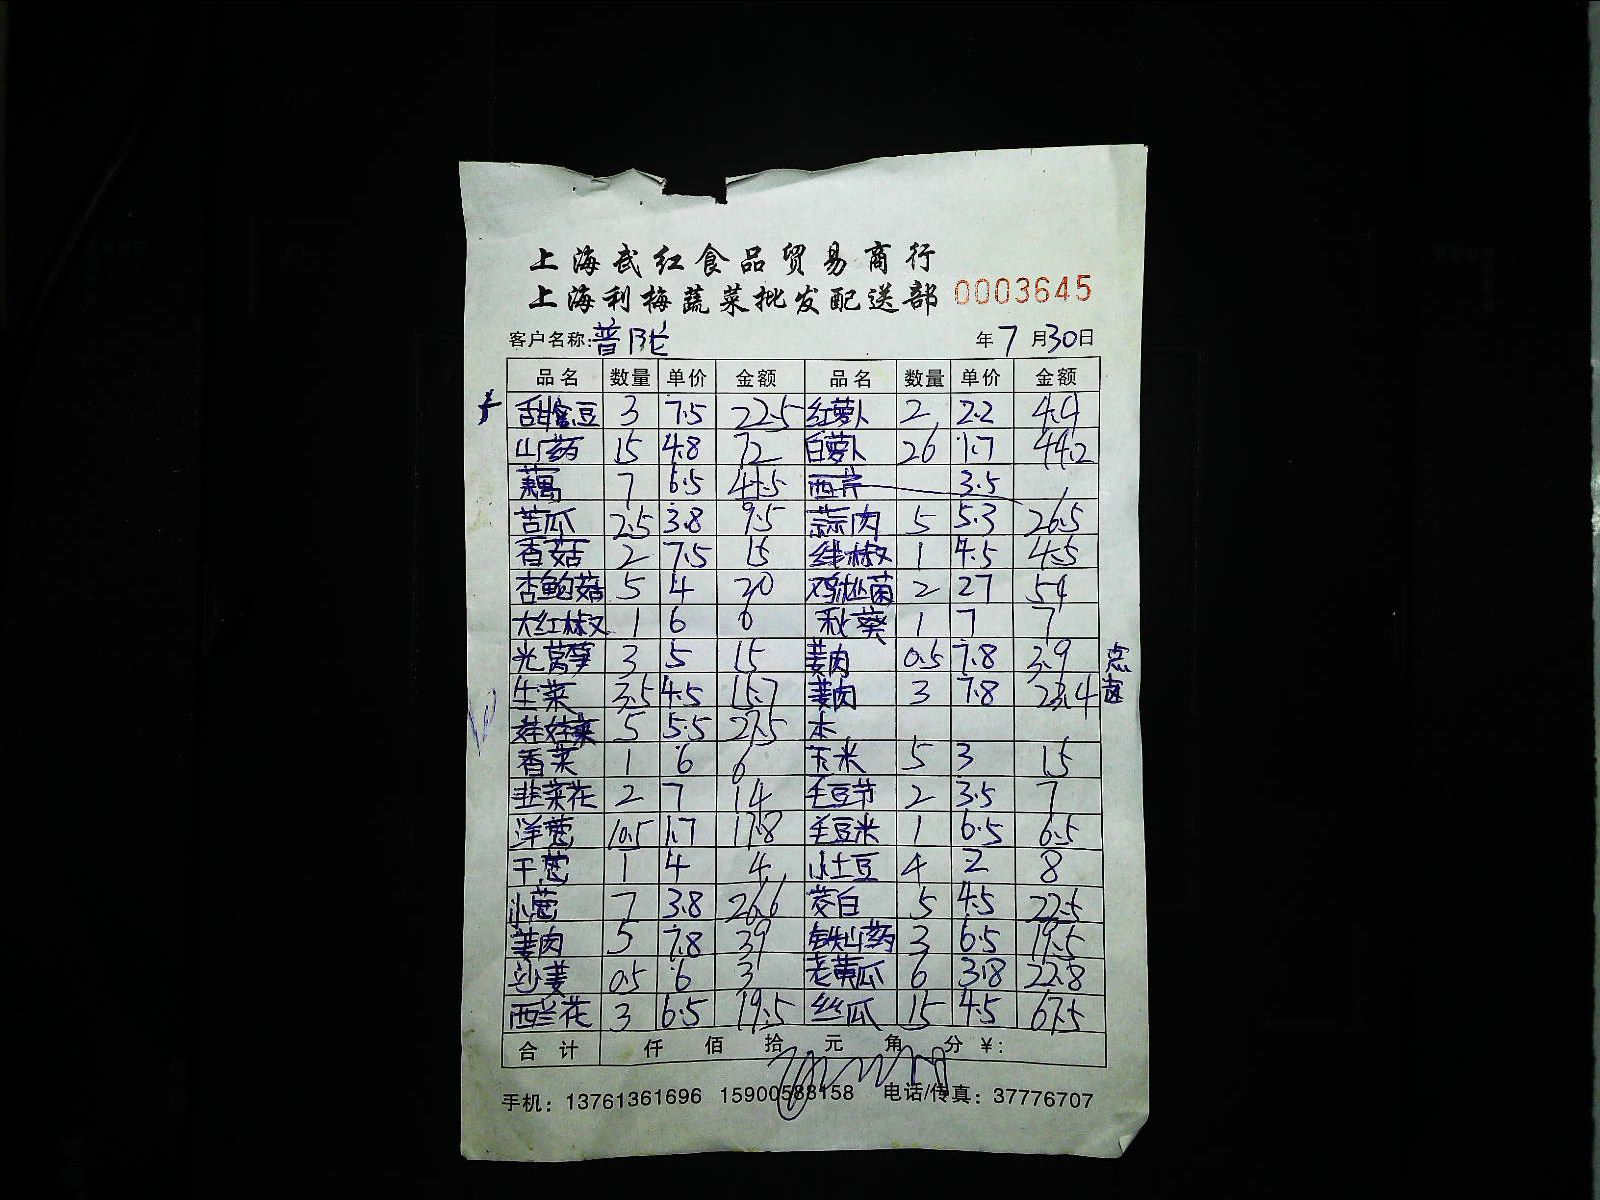 上海武红食品贸易商行
上海利梅蔬菜批发配送部 0003645
客户名称:普陀 年7月30日
品名 数量 单价 金额 品名 数量 单价 金额
甜蜜豆 3 7.5 22.5 红萝卜 2 2.2 4.4
山药 15 4.8 72 白萝卜 26 1.7 44.2
藕 7 6.5 45.5 西芹 3.5
苦瓜 2.5 3.8 9.5 蒜肉 5 5.3 26.5
香菇 2 7.5 15 线椒 1 4.5 4.5
杏鲍菇 5 4 20 鸡枞菌 2 27 54
大红椒 1 6 6 秋葵 1 7 7
光莴笋 3 5 15 姜肉 0.5 7.8 3.9 点
生菜 3.5 4.5 15.7 姜肉 3 7.8 23.4
娃娃菜 5 5.5 27.5 本
香菜 1 6 6 玉米 5 3 15
韭菜花 2 7 14 毛豆节 2 3.5 7
洋葱 10.5 1.7 17.8 毛豆米 1 6.5 6.5
干葱 1 4 4 小土豆 4 2 8
小葱 7 3.8 26.6 茭白 5 4.5 22.5
姜肉 5 7.8 39 铁山药 3 6.5 19.5
沙姜 0.5 6 3 老黄瓜 6 3.8 22.8
西兰花 3 6.5 19.5 丝瓜 15 4.5 67.5
合计 仟 佰 拾 元 角 分 ¥:
手机: 13761361696 15900588158 电话/传真: 37776707